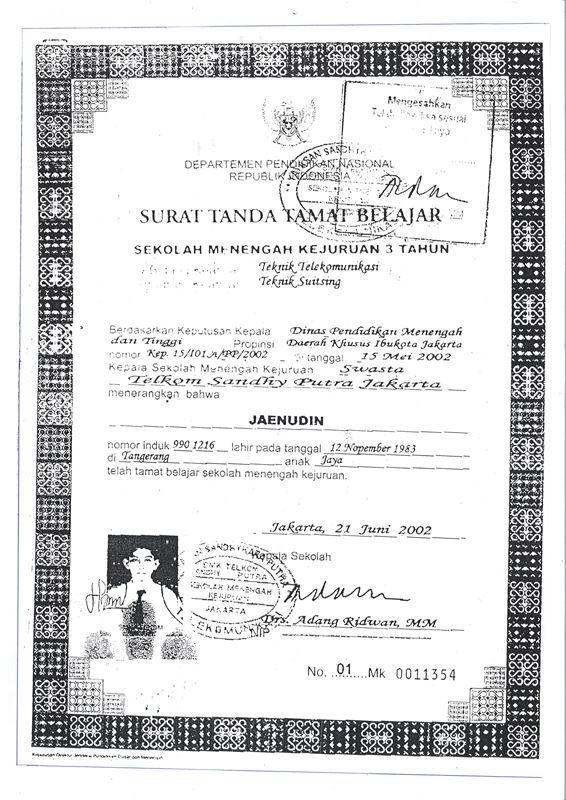 Mengesahkan
DEPARTEMEN PENDIDIKAN NASIONAL
REPUBLIK INDONESIA
SURAT TANDA TAMAT BELAJAR
SEKOLAH MENENGAH KEJURUAN 3 TAHUN
Teknik Telekomunikasi
Teknik Suitsing
Berdasarkan Keputusan Kepala Dinas Pendidikan Menengah
dan Tinggi Propinsi Daerah Khusus Ibukota Jakarta
nomor Kep. 15/101.A/PP/2002 tanggal 15 Mei 2002
Kepala Sekolah Menengah Kejuruan Swasta
Telkom Sandhy Putra Jakarta
menerangkan bahwa
JAENUDIN
nomor induk 990 1216 lahir pada tanggal 12 Nopember 1983
di Tangerang anak Jaya
telah tamat belajar sekolah menengah kejuruan.
Jakarta, 21 Juni 2002
Kepala Sekolah
SMK TELKOM
SANDHY PUTRA
SEKOLAH MENENGAH
KEJURUAN
JAKARTA
Drs. Adang Ridwan, MM
NIP
No. 01 Mk 0011354